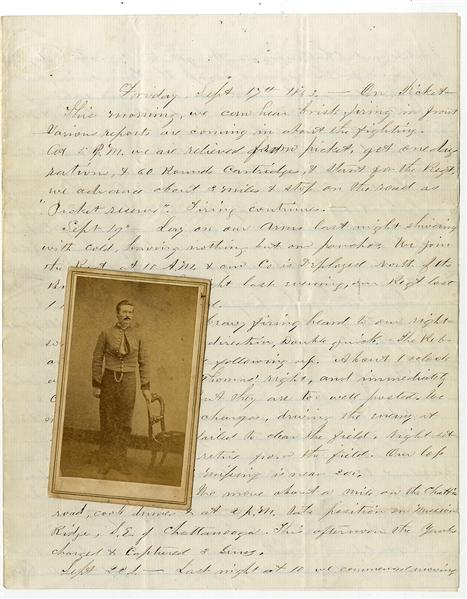 Sept 17th 1863 — On Picket —
This morning, we can hear brisk firing in front
Various reports are coming in about the fighting.
At 5 P.M. we are relieved from picket, get one days
rations, & 60 Rounds Cartridges, & start for the Regt,
we advance about 2 miles & stop on the road as
"Picket reserve". Firing continues.
Sept 19" — Lay on our Arms last night shivering
with cold, having nothing but our ponchos. We join
the Regt. at 10 A.M. & our Co. is Deployed North of the
last evening, our Regt lost
firing heard to our right
direction, double quick. The Rebs
following up. About 1 oclock
Thomas' right, and immediately
but they are too well posted. We
charges, driving the enemy at
failed to clear the field. Night set
retire from the field. Our loss
missing is near 200.
We move about a mile on the Chatt
road, cook dinner & at 2 P.M. take position on Mission
Ridge, S.E. of Chattanooga. This afternoon the Yanks
charged & Captured 2 Guns.
Sept 22d — Last night at 10 we commenced moving